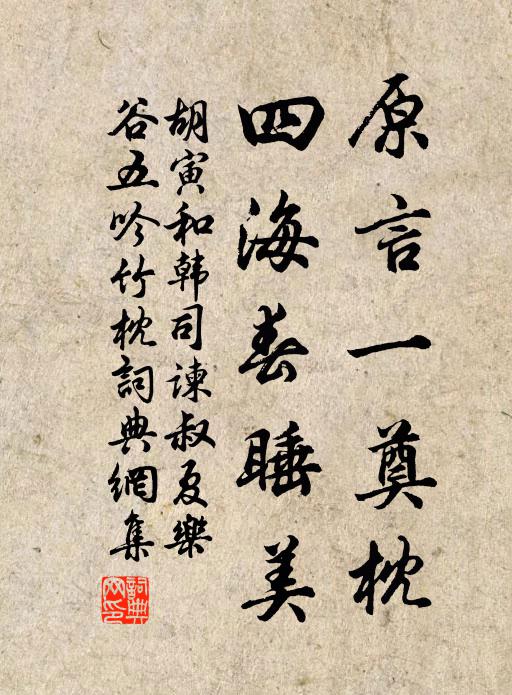 原言一奠枕
四海春睡美
胡寅和韩司谏叔夏樂
谷五吟竹枕詞典網集
詞典網印